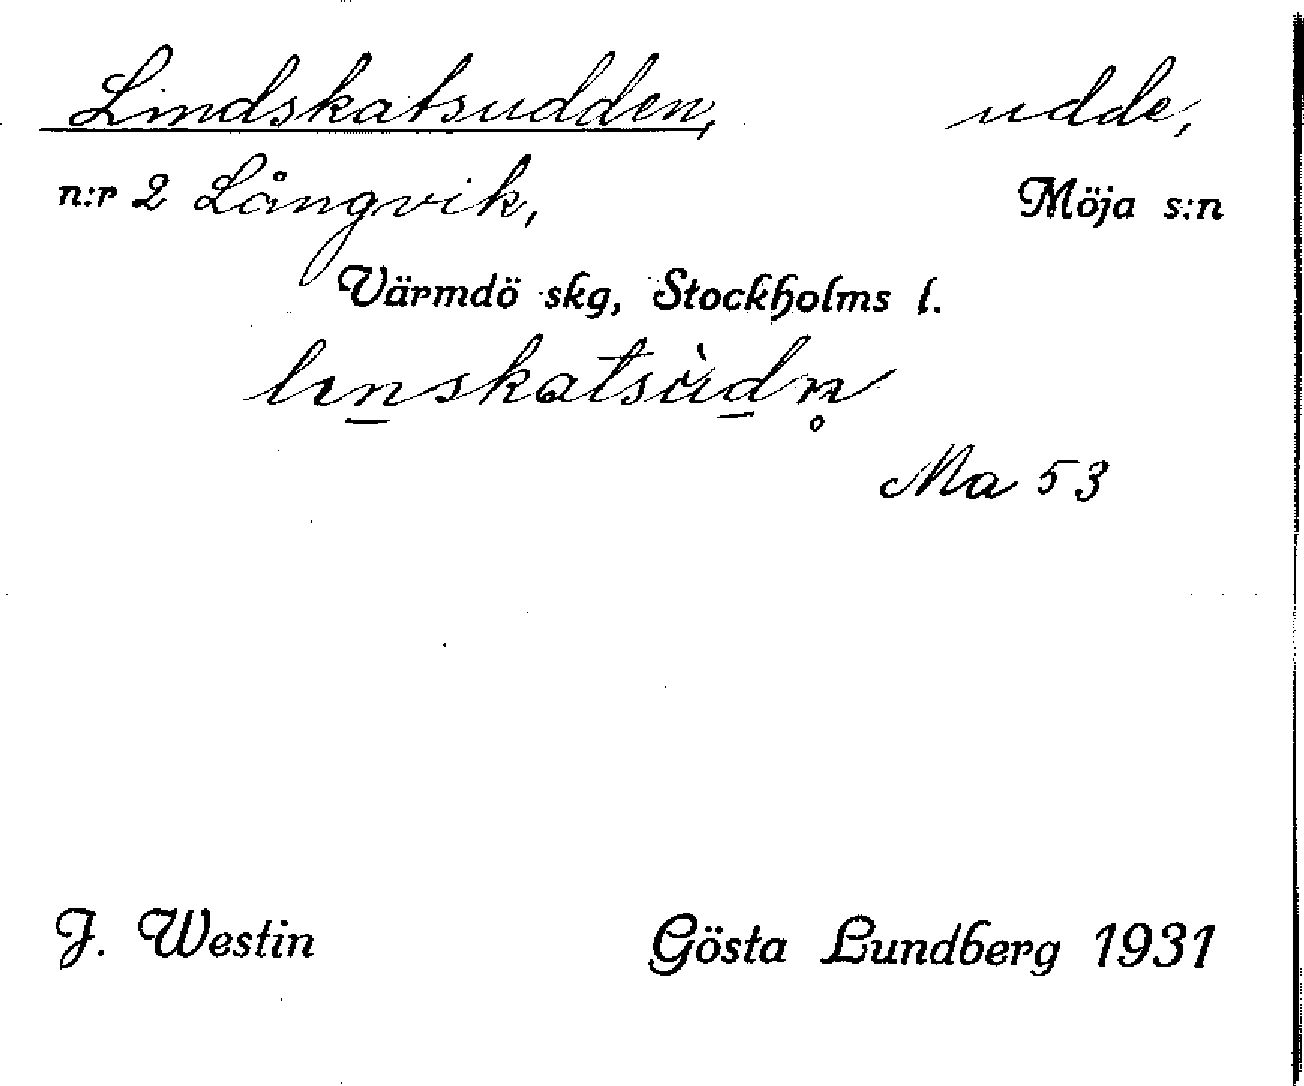 Lindskatsudden, udde,
n:r 2 Långvik, Möja s:n
Värmdö skg, Stockholms l.
Ma 53
J. Westin Gösta Lundberg 1931